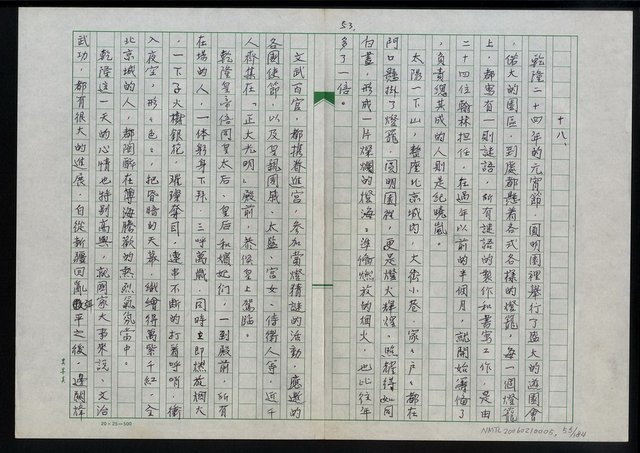 53.
十八、
乾隆二十四年的元宵節,圓明園裡舉行了盛大的遊園會
,偌大的園區,到處都懸着各式各樣的燈籠,每一個燈籠
上,都寫有一則謎語,所有謎語的製作和書寫工作,是由
二十四位翰林担任,在過年以前的半個月,就開始籌備了
,負責總其成的人則是紀曉嵐。
太陽一下山,整座北京城內,大街小巷,家家戶戶都在
門口懸掛了燈籠,圓明園裡,更是燈火輝煌,照耀得如同
白晝,形成一片燦爛的燈海。準備燃放的烟火,也比往年
多了一倍。
文武百官,都携眷進宮,參加賞燈猜謎的活動,應邀的
各國使節,以及皇親國戚、太監、宮女、侍衛人等,近千
人齊集在「正大光明」殿前,恭候皇上駕臨。
乾隆皇帝偕同皇太后、皇后和嬪妃們,一到殿前,所有
在場的人,一体躬身下拜,三呼萬歲,同時立即燃放烟火
,一下子火樹銀花,璀璨奪目,連串不斷的打着呼哨,衝
入夜空,形形色色,把昏暗的天幕,織繪得萬紫千紅,全
北京城的人,都陶醉在薄海騰歡的熱烈氣氛當中。
乾隆這一天的心情也特別高興,就國家大事來說,文治
武功,都有很大的進展,自從新疆回亂敉平之後,邊關烽
20×25=500
NMTL20060210005, 55/184